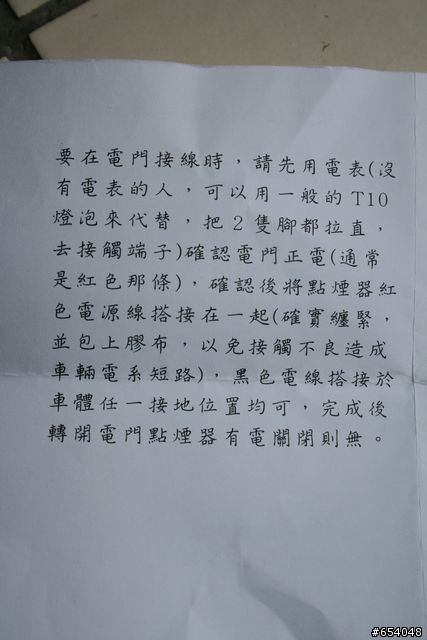 要在電門接線時，請先用電表(沒
有電表的人，可以用一般的 T10
燈泡來代替，把 2 隻腳都拉直，
去接觸端子)確認電門正電(通常
是紅色那條)，確認後將點煙器紅
色電源線搭接在一起(確實纏緊，
並包上膠布，以免接觸不良造成
車輛電系短路)，黑色電線搭接於
車體任一接地位置均可，完成後
轉開電門點煙器有電關閉則無。
#654048